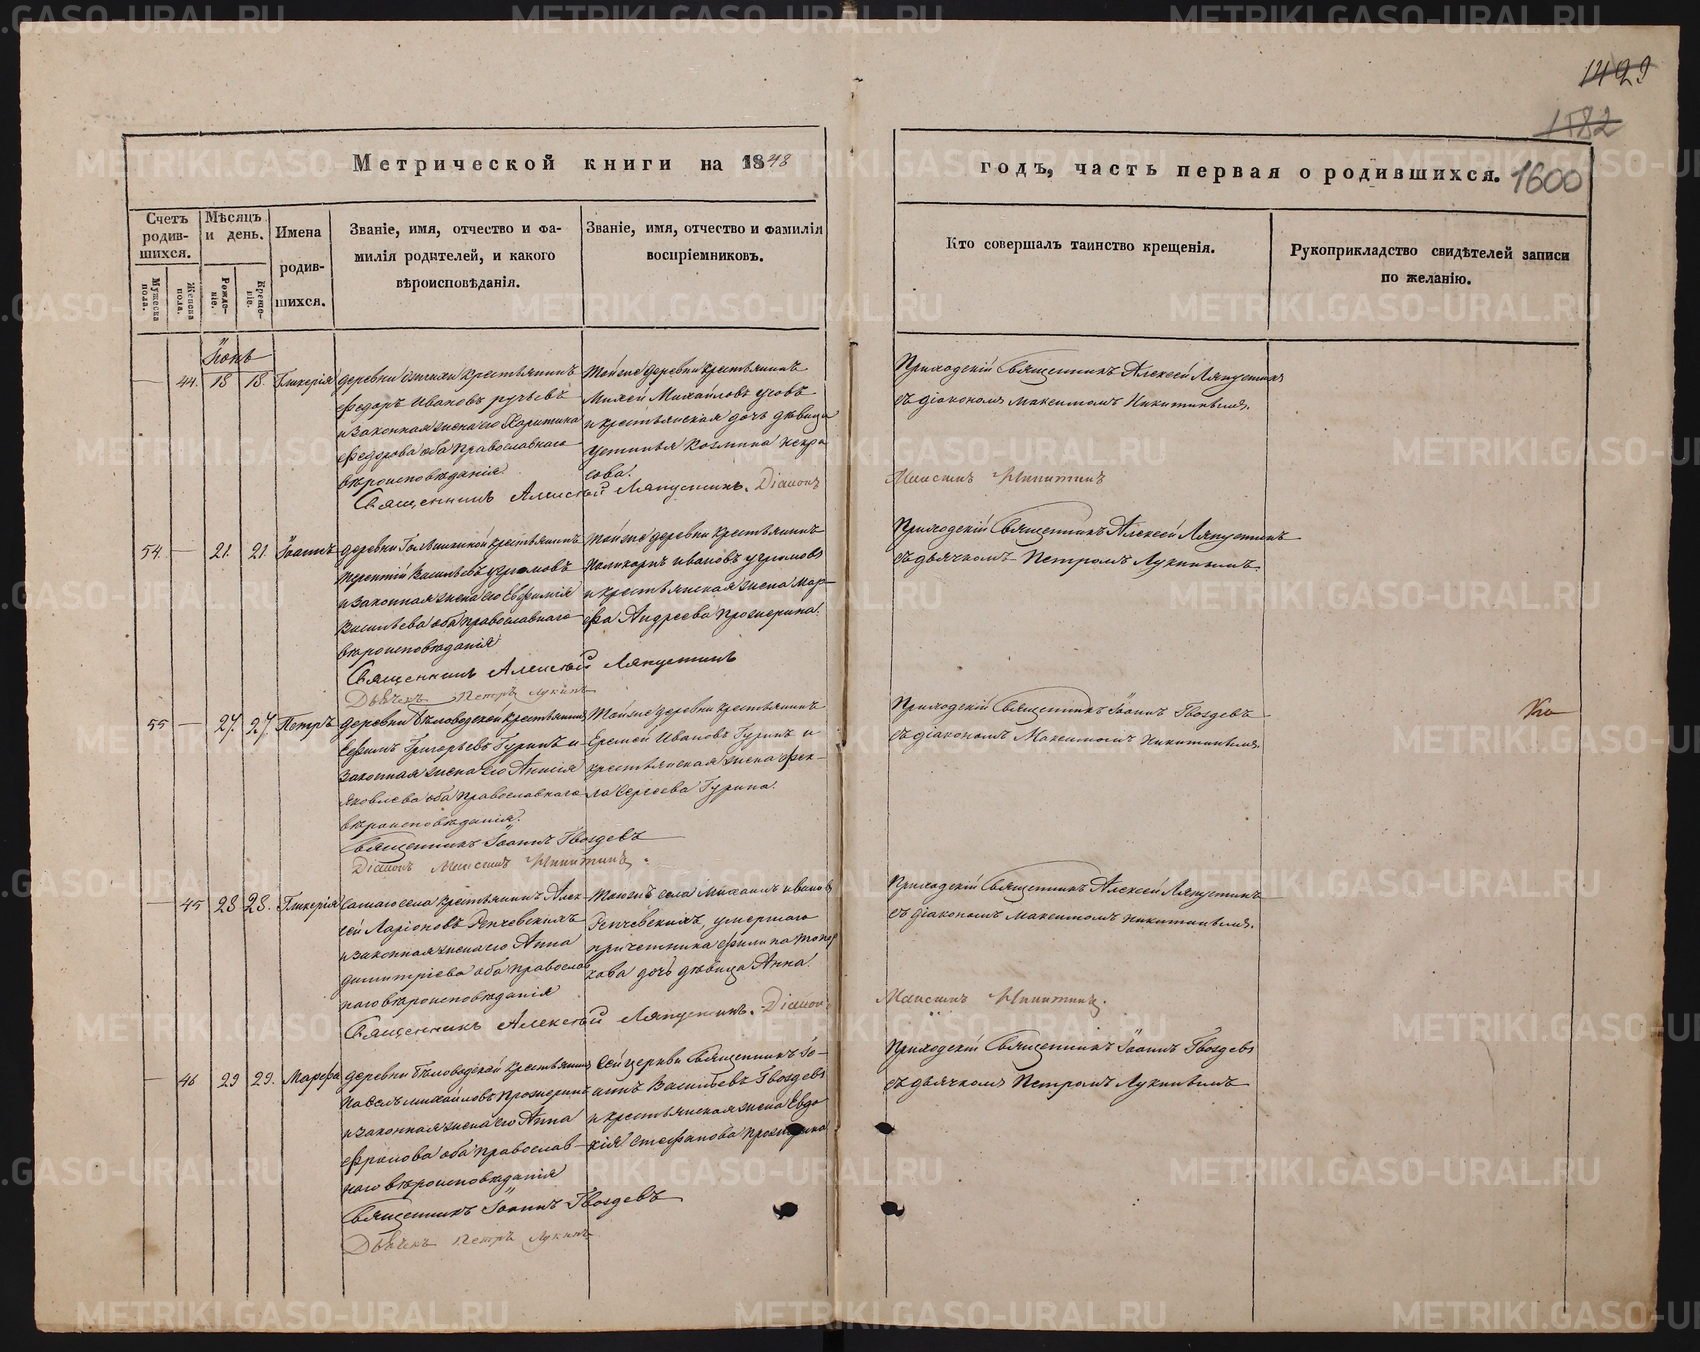 1429
1582
1600
Метрической книги на 1848
годъ, часть первая о родившихся.
Счетъ родив-шихся.
Мѣсяцъ и день.
Имена родив-шихся.
Званіе, имя, отчество и фа-
милія родителей, и какого
вѣроисповѣданія.
Званіе, имя, отчество и фамилія
воспріемниковъ.
Кто совершалъ таинство крещенія.
Рукоприкладство свидѣтелей записи
по желанію.
Мужеска пола.
Женска пола.
Рожде-ніе.
Креще-ніе.
Іюнь
— 44. 18 18. Гликерія
деревни крестьянинъ
Федоръ Ивановъ
и законная жена его Харитина
Федорова оба Православнаго
вѣроисповѣданія.
Тойже деревни крестьянинъ
Михей Михайловъ Усовъ
и крестьянская дочь дѣвица
Устинья Козмина Некра
сова.
Священникъ Алексѣй Ляпустинъ. Діаконъ
Максимъ Никитинъ
Приходскій Священникъ Алексей Ляпустинъ
съ діакономъ Максимомъ Никитинымъ.
54. — 21. 21 Іоаннъ
деревни крестьянинъ
Терентій Васильевъ Угрюмовъ
и законная жена его Евфимія
Васильева оба православнаго
вѣроисповѣданія
Тойже деревни крестьянинъ
Поликарпъ Ивановъ Угрюмовъ
и крестьянская жена Мар-
фа Андреева Прожерина.
Священникъ Алексѣй Ляпустинъ
Дьячекъ Петръ Лукинъ
Приходскій Священникъ Алексей Ляпустинъ
съ дьячкомъ Петромъ Лукинымъ.
55 — 27. 27. Петръ
деревни Бѣловодской крестьянинъ
Ефимъ Григорьевъ Гуринъ и
законная жена его Анисія
Яковлева оба Православнаго
вѣроисповѣданія.
Тойже деревни крестьянинъ
Еремей Ивановъ Гуринъ и
крестьянская жена Фек-
ла Сергеева Гурина.
Священникъ Іоаннъ Гвоздевъ
Діаконъ Максимъ Никитинъ.
Приходскій Священникъ Іоаннъ Гвоздевъ
съ діакономъ Максимомъ Никитинымъ.
— 45 28 28. Гликерія
Самаго села крестьянинъ Алек
сѣй Ларіоновъ
и законная жена его Анна
Димитріева оба православ
наго вѣроисповѣданія
Тогожъ села Михаилъ Ивановъ
умершаго
причетника Филипа Топор
кова дочь дѣвица Анна.
Священникъ Алексѣй Ляпустинъ. Діаконъ
Максимъ Никитинъ.
Приходскій Священникъ Алексей Ляпустинъ
съ діакономъ Максимомъ Никитинымъ.
— 46 29 29. Марфа
деревни Бѣловодской крестьянинъ
Павелъ Михайловъ Прожеринъ
и законная жена его Анна
Фролова оба православ-
наго вѣроисповѣданія
Сей церкви Священникъ Іо-
аннъ Васильевъ Гвоздевъ
и крестьянская жена Евдо
кія Стефанова Прожерина
Священникъ Іоаннъ Гвоздевъ
Дьячекъ Петръ Лукинъ
Приходскій Священникъ Іоаннъ Гвоздевъ
съ дьячкомъ Петромъ Лукинымъ
METRIKI.GASO-URAL.RU